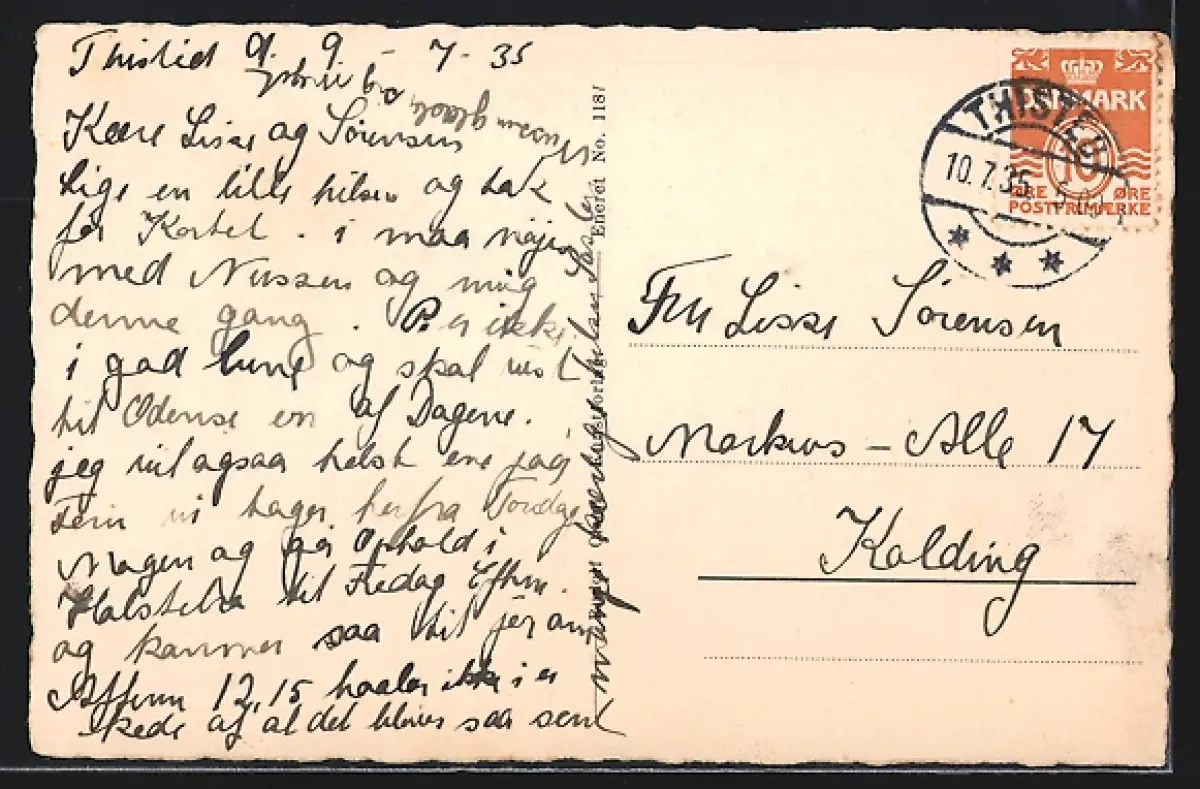 Thisted d. 9 - 7 - 35
Kære Lisse og Sørensen
Lige en lille hilsen og tak
for Kortet. i maa nøjes
med Nussen og mig
denne gang. P. er ikke
i god lune og skal vist
til Odense en af Dagene.
jeg vil ogsaa helst ene jag
Fem vi tager herfra Torsdag
Morgen og gør Ophold i
Holstebro til Fredag Efterm.
og kommer saa til jer om
Aftenen 12,15 haaber ikke i er
kede af at det bliver saa sent
Eneret No. 1187
DANMARK
10
ØRE ØRE
POSTFRIMÆRKE
THISTED
10.7.35
Fru Lisse Sørensen
Markus - Alle 17
Kolding